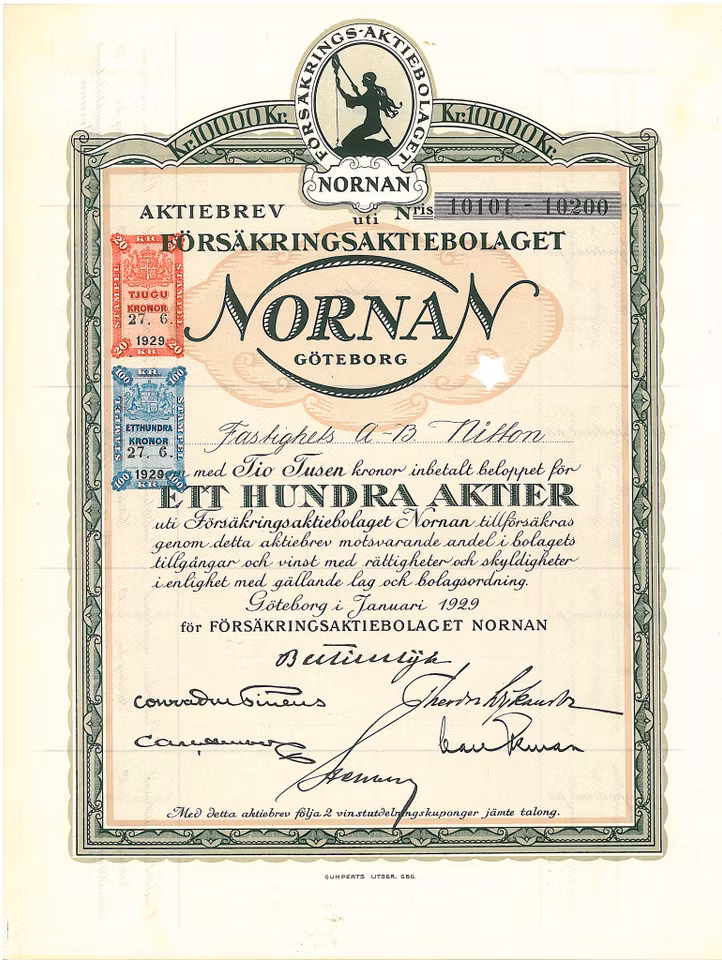 FÖRSÄKRINGS-AKTIEBOLAGET
NORNAN
Kr. 10000 Kr. Kr. 10000 Kr.
AKTIEBREV uti Nris 10101 - 10200
FÖRSÄKRINGSAKTIEBOLAGET
NORNAN
GÖTEBORG
20 KR 20
STÄMPEL STÄMPEL
TJUGU
KRONOR
27. 6.
1929
20 KR 20
100 KR 100
STÄMPEL STÄMPEL
ETTHUNDRA
KRONOR
27. 6.
1929
100 KR 100
Fastighets A-B Nitton
med Tio Tusen kronor inbetalt beloppet för
ETT HUNDRA AKTIER
uti Försäkringsaktiebolaget Nornan tillförsäkras
genom detta aktiebrev motsvarande andel i bolagets
tillgångar och vinst med rättigheter och skyldigheter
i enlighet med gällande lag och bolagsordning.
Göteborg i Januari 1929
för FÖRSÄKRINGSAKTIEBOLAGET NORNAN
Med detta aktiebrev följa 2 vinstutdelningskuponger jämte talong.
GUMPERTS LITOGR. GBG.